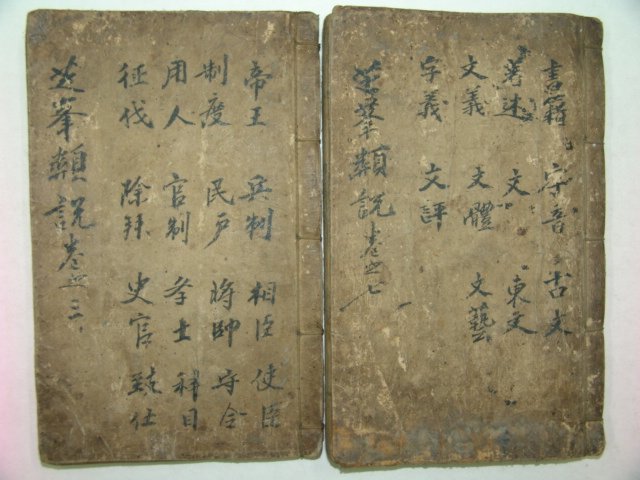 書籍 字音 古文
著述 文 東文
文義 文體 文藝
字義 文評
芝峯類說卷之七
帝王 兵制 相臣 使臣
制度 民戶 將帥 守令
用人 官制 斈士 科目
征伐 除拜 史官 致仕
芝峯類說卷之三